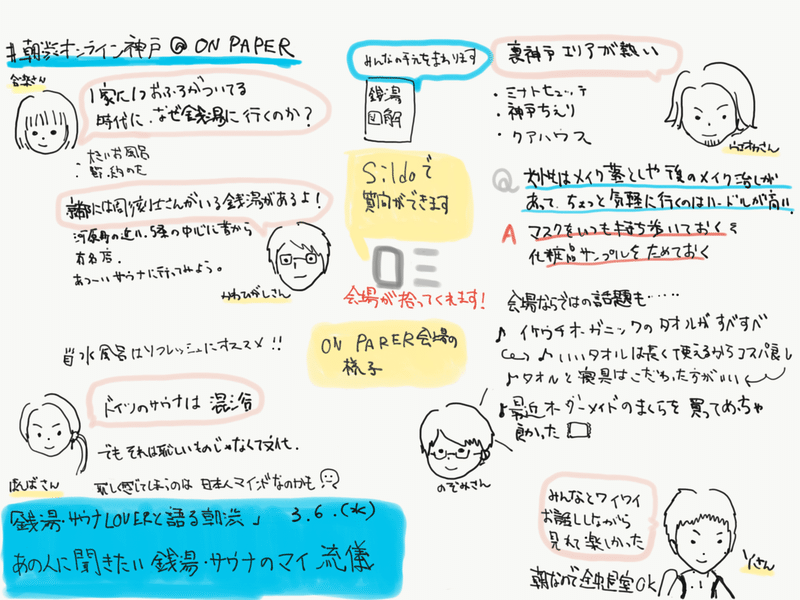 #朝渋オンライン神戸@ON PAPER
みんなの手元をまわります
銭湯
図解
裏神戸エリアが熱い
・ミナトヒュッテ
・神戸ちえり
・クアハウス
1家に1つおふろがついてる
時代に、なぜ銭湯に行くのか?
・広いお風呂
Sildoで
質問ができます
会場が拾ってくれます!
Q 女性はメイク落としや後のメイク治しが
あって、ちょっと気軽に行くのはハードルが高い。
A マスクをいつも持ち歩いておく&
化粧品サンプルをためておく
京都には周波出さんがいる銭湯があるよ!
河原町の近い、5条の中心に昔から
有名店。
あつーいサウナに行ってみよう。
かわひがしさん
水風呂はリフレッシュにオススメ!!
ON PARER会場の
様子
会場ならではの話題も……
♪ イケウチオーガニックのタオルがすべすべ
♪いいタオルは長くて使えるからコスパ良し
♪タオルと寝具はこだわった方がいい
♪最近オーダーメイドのまくらを買ってめっちゃ
良かった
のぞみさん
ドイツのサウナは混浴
でもそれは恥しいものじゃなくて文化。
恥しく感じてしまうのは日本人マインドなのかも
ばんばさん
みんなとワイワイ
お話ししながら
見れて楽しかった
Yさん
朝なので全中退室OK
「銭湯・サウナLOVERと語る朝渋」 3.6.(水)
あの人に聞きたい銭湯・サウナのマイ流儀